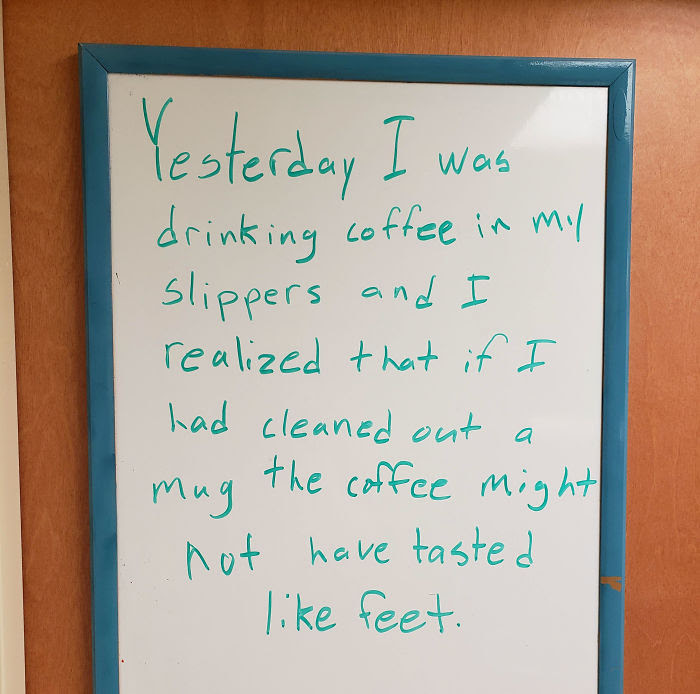 Yesterday I was
drinking coffee in my
slippers and I
realized that if I
had cleaned out a
mug the coffee might
not have tasted
like feet.